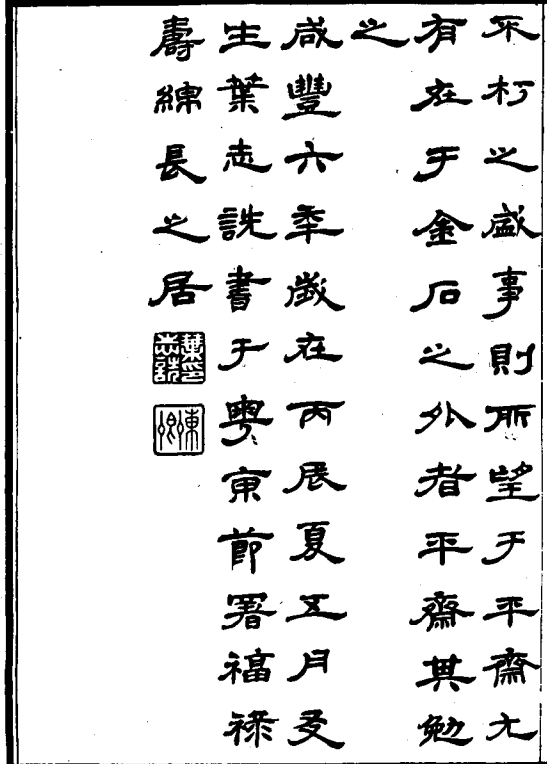 不朽之盛事則所望于平齋尤
有在于金石之外者平齋其勉
之
咸豐六年歲在丙辰夏五月友
生葉志詵書于粵東節署福祿
壽綿長之居
葉志詵印
東卿